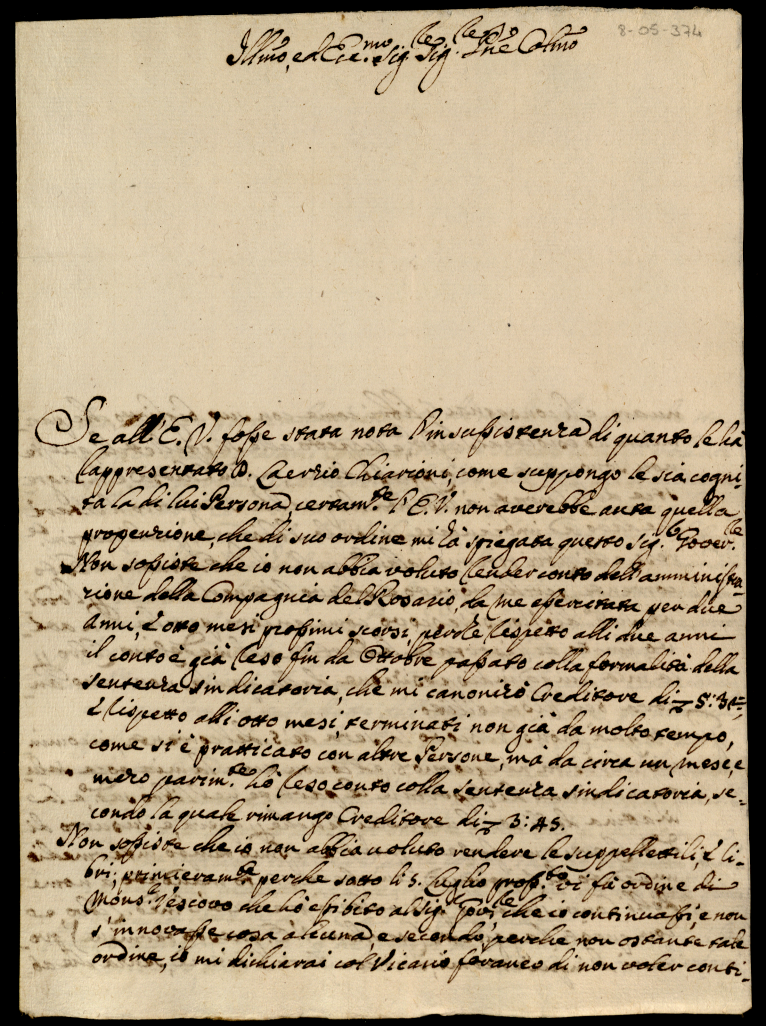 8-05-374
Illmo, ed Ecc.mo Sig.re Sig.re Pne Colmo
Se all'E. V. fosse stata nota l'insussistenza di quanto le hà
rappresentato D. Laerzio Chiarioni, come suppongo le sia cogni-
ta la di lui Persona, certam.te l'E. V. non averebbe auta quella
propenzione, che di suo ordine mi hà spiegata questo Sig.r Gover.re
Non sossiste che io non abbia voluto render conto dell'amministra-
zione della Compagnia del Rosario, da me esercitata per due
anni, e otto mesi prossimi scorsi, perche rispetto alli due anni
il conto è già reso fin da Ottobre passato colla formalità della
sentenza sindicatoria, che mi canonizò Creditore di 5:
e rispetto alli otto mesi, terminati non già da molto tempo,
come si è pratticato con altre Persone, mà da circa un mese, e
mezo parim.te hò reso conto colla sentenza sindicatoria, se-
condo la quale rimango Creditore di 3:45.
Non sossiste che io non abbia voluto rendere le suppellettili, e li-
bri, primieram.te perche sotto li 5. Luglio pross.o vi fù ordine di
Mons.r Vescovo che hò esibito al Sig.r Gov.re, che io continuassi, e non
s'innovasse cosa alcuna, e secondo, perche non ostante tale
ordine, io mi dichiarai col Vicario foraneo di non voler conti-